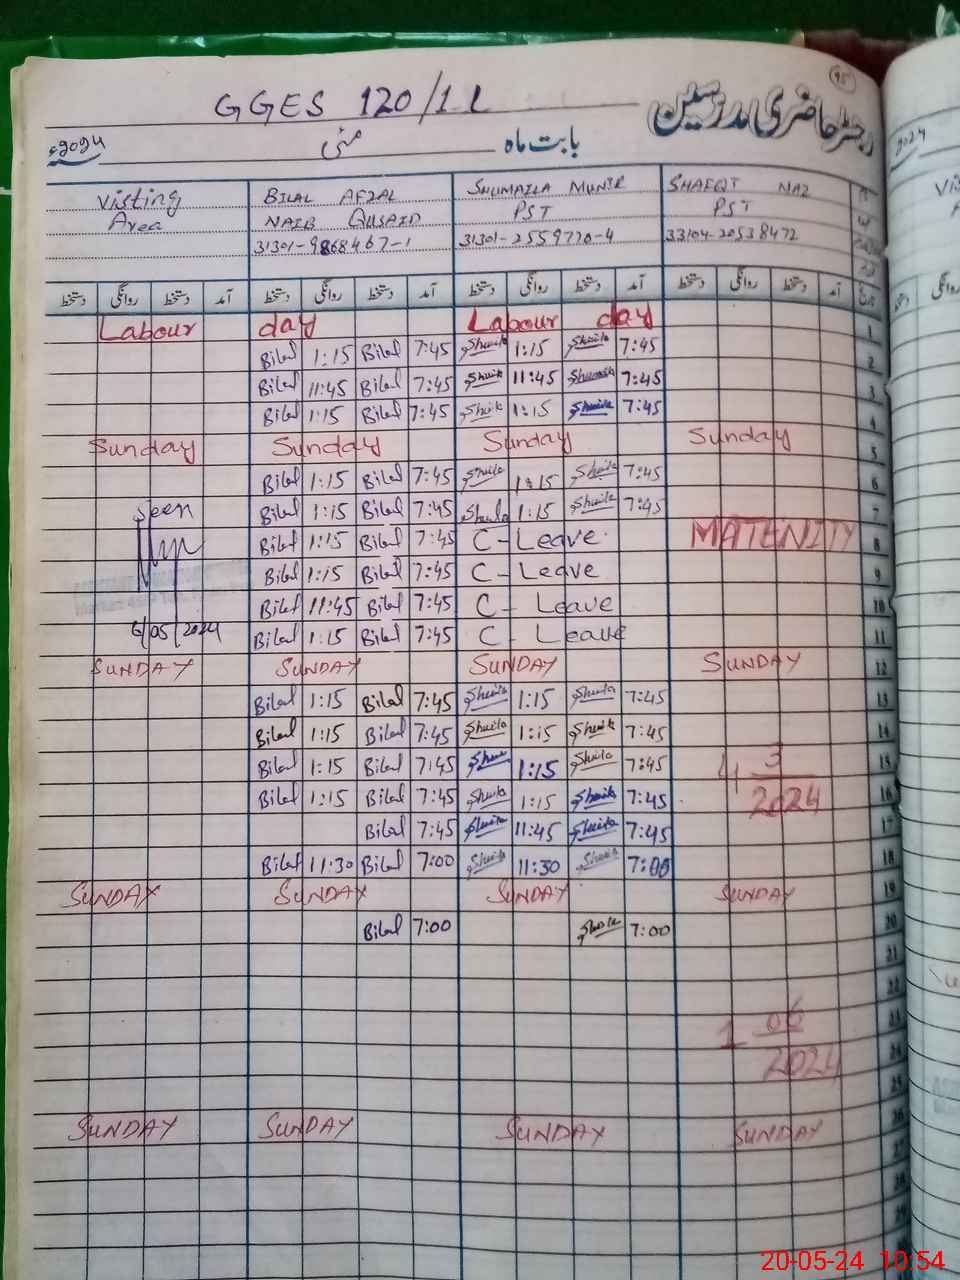 95
GGES 120/1L رجسٹر حاضری مدرسین
2024ء مئی بابت ماہ
Visting BILAL AFZAL SHUMAILA MUNIR SHAFQT NAZ
Area NAIB QUSAID PST PST
31301-9868467-1 31301-2559770-4 33104-20538472
دستخط روانگی دستخط آمد دستخط روانگی دستخط آمد دستخط روانگی دستخط آمد دستخط روانگی دستخط آمد
Labour day Labour day 1
Bilal 1:15 Bilal 7:45 1:15 7:45 2
Bilal 11:45 Bilal 7:45 11:45 7:45 3
Bilal 1:15 Bilal 7:45 1:15 7:45 4
Sunday Sunday Sunday Sunday 5
Bilal 1:15 Bilal 7:45 1:15 7:45 6
Seen Bilal 1:15 Bilal 7:45 1:15 7:45 7
Bilal 1:15 Bilal 7:45 C-Leave MATENITY 8
Bilal 1:15 Bilal 7:45 C-Leave 9
Bilal 11:45 Bilal 7:45 C-Leave 10
6/05/2024 Bilal 1:15 Bilal 7:45 C-Leave 11
SUNDAY SUNDAY SUNDAY SUNDAY 12
Bilal 1:15 Bilal 7:45 1:15 7:45 13
Bilal 1:15 Bilal 7:45 1:15 7:45 14
Bilal 1:15 Bilal 7:45 1:15 7:45 4 3 15
Bilal 1:15 Bilal 7:45 1:15 7:45 2024 16
Bilal 7:45 11:45 7:45 17
Bilal 11:30 Bilal 7:00 11:30 7:00 18
SUNDAY SUNDAY SUNDAY SUNDAY 19
Bilal 7:00 7:00 20
21
22
1 06 23
2024 24
25
SUNDAY SUNDAY SUNDAY SUNDAY 26
27
28
20-05-24 10:54